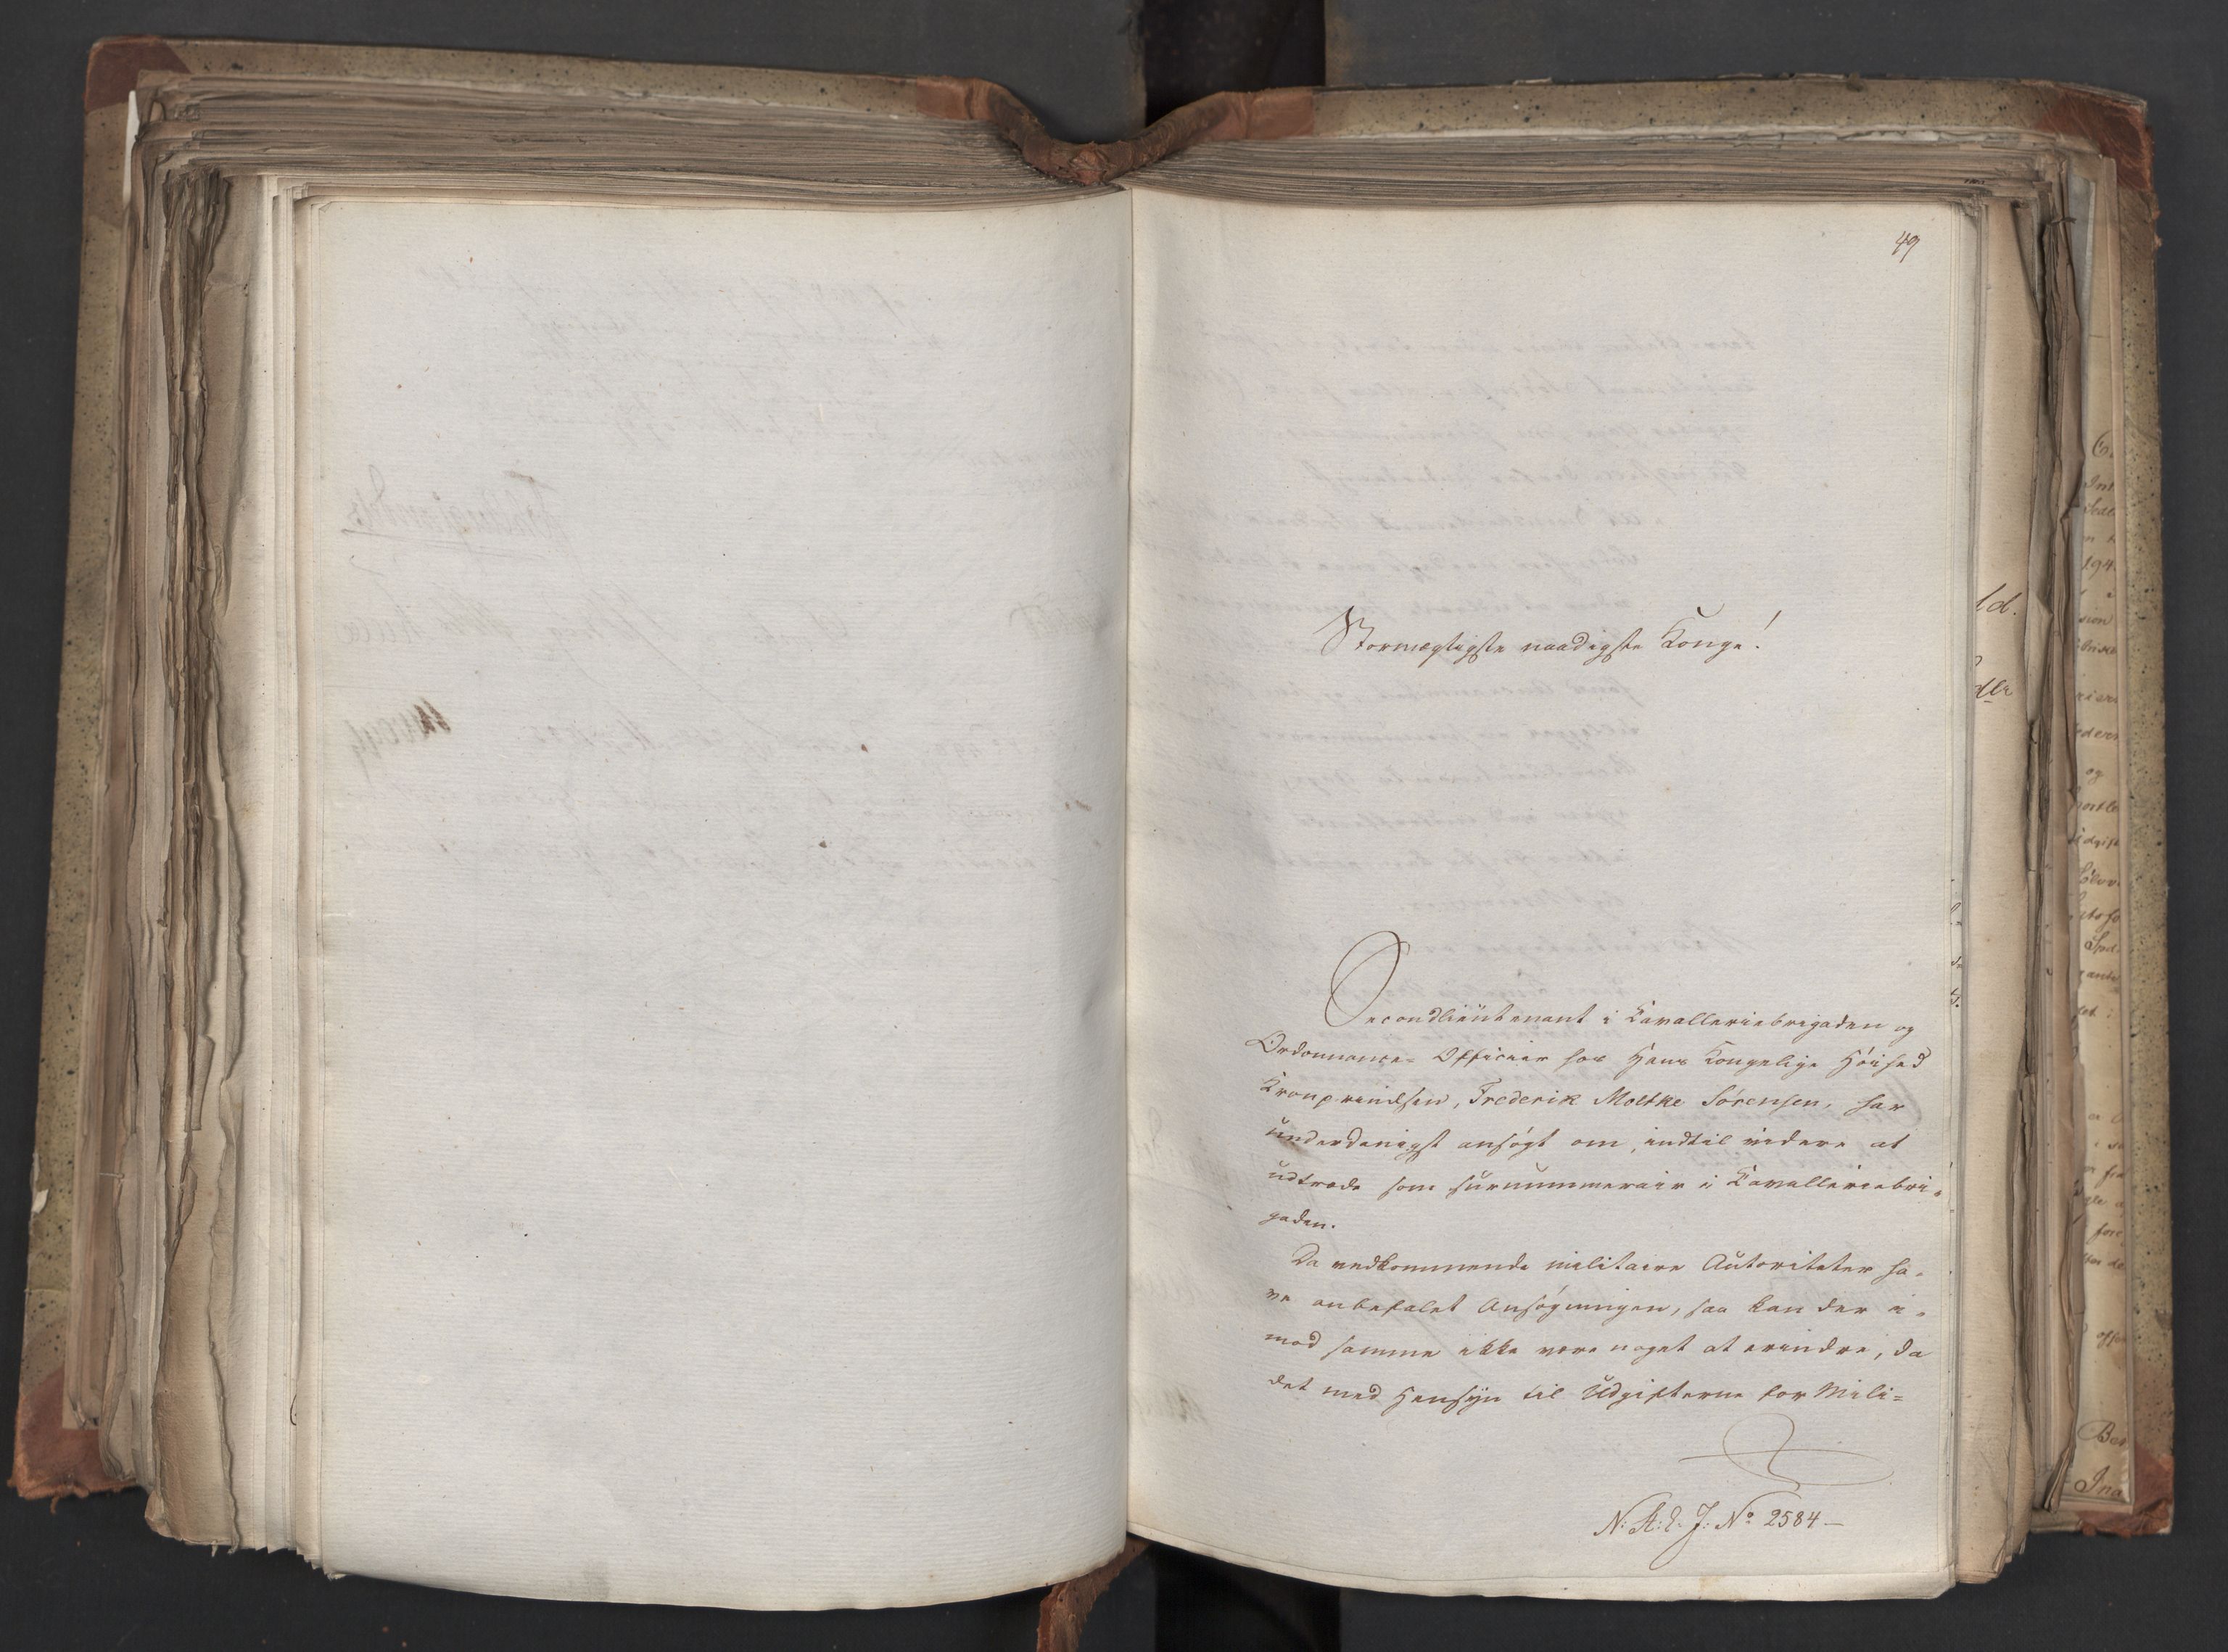 49
Stormægtigste naadigste Konge!
Secondlieutenant i Cavalleriebrigaden og
Ordonnance-Officier hos Hans Kongelige Höihed
Kronprindsen, Frederik Moltke Sörensen, har
underdanigst ansögt om, indtil videre at
udtræde som surnummerair i Cavalleriebri-
gaden.
Da vedkommende militaire Autoriteter ha-
ve anbefalet Ansögningen, saa kan der i-
mod samme ikke være noget at erindre, da
det med Hensyn til Udgifterne for Mili-
N: A: E. J: No 2584 –